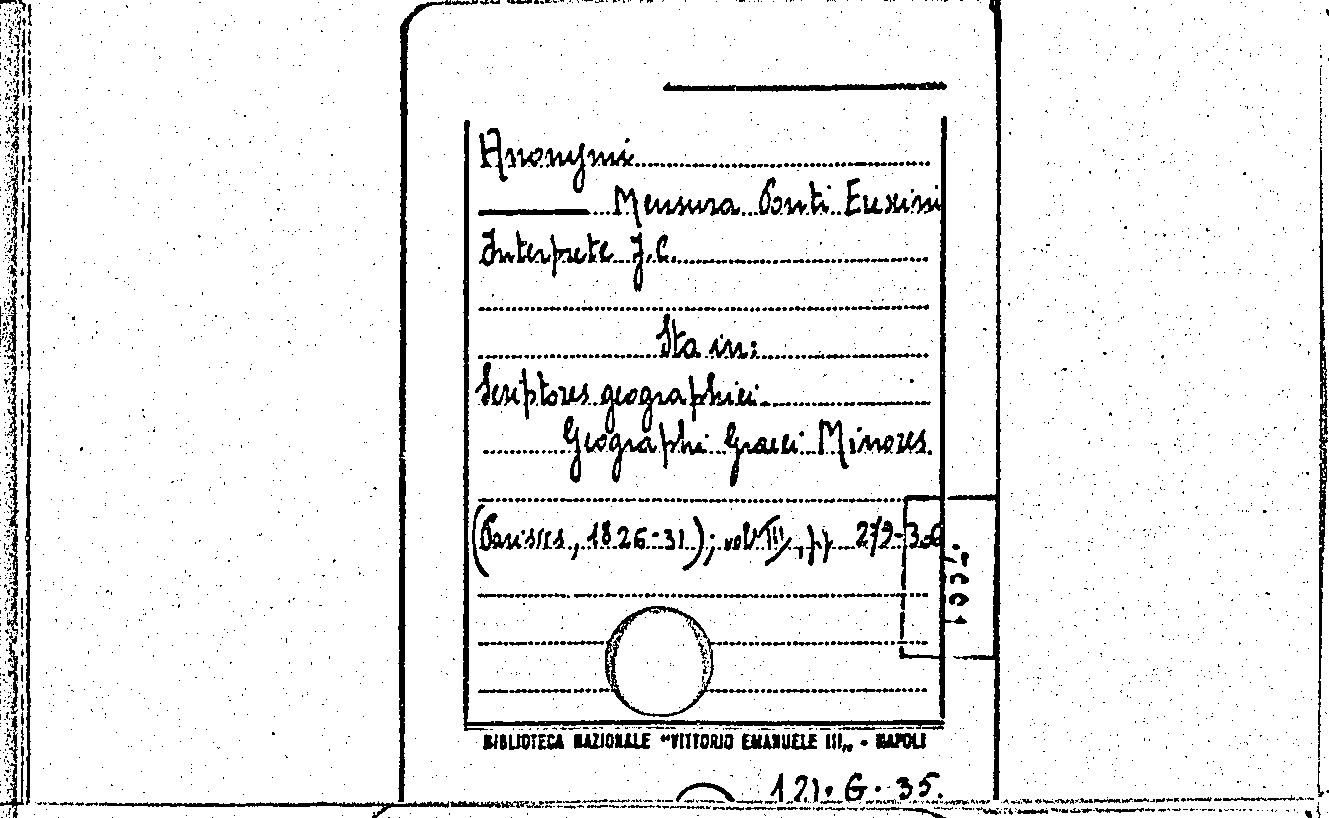 Anonymi
Mensura Ponti Euxini
Interprete J.C.
Sta in:
Scriptores geographici.
Geographi Graeci Minores.
(Parisiis, 1826-31); vol. III, pp. 279-306
BIBLIOTECA NAZIONALE "VITTORIO EMANUELE III„ - NAPOLI
121. G. 35.